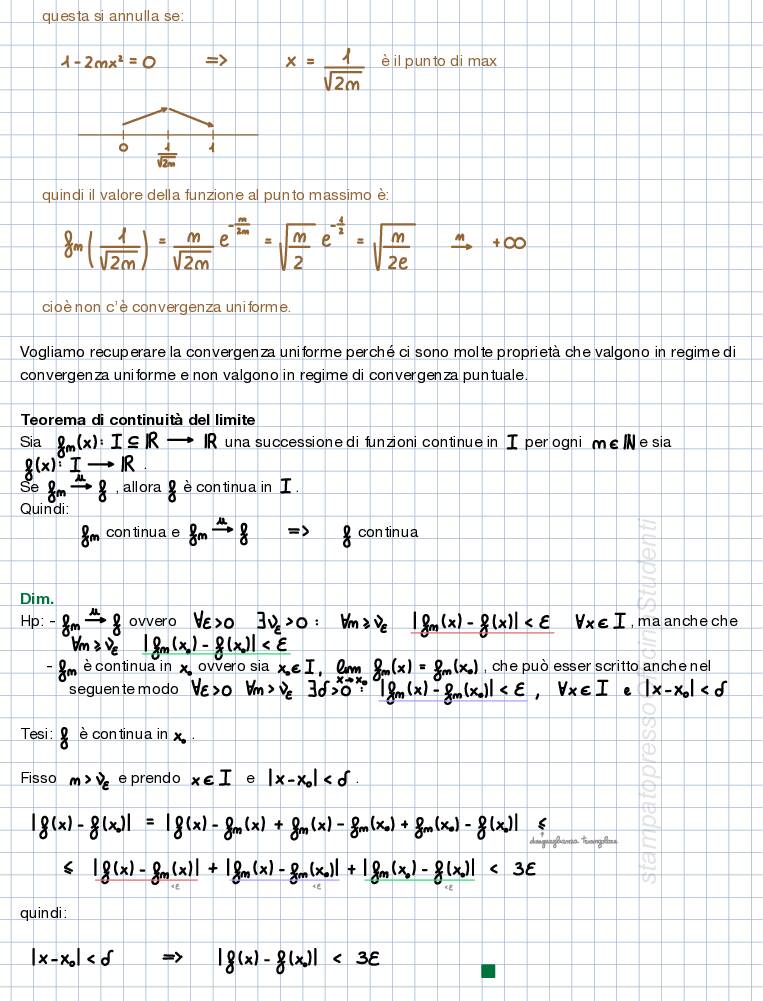 questa si annulla se:
1 - 2mx² = 0 => x = 1/√2m è il punto di max
0 1/√2m 1
quindi il valore della funzione al punto massimo è:
fm(1/√2m) = m/√2m e^(-m/2m) = √(m/2) e^(-1/2) = √(m/2e) m→ +∞
cioè non c'è convergenza uniforme.
Vogliamo recuperare la convergenza uniforme perché ci sono molte proprietà che valgono in regime di
convergenza uniforme e non valgono in regime di convergenza puntuale.
Teorema di continuità del limite
Sia fm(x): I ⊆ ℝ → ℝ una successione di funzioni continue in I per ogni m ∈ ℕ e sia
f(x): I → ℝ .
Se fm u→ f , allora f è continua in I .
Quindi:
fm continua e fm u→ f => f continua
Dim.
Hp: - fm u→ f ovvero ∀ε>0 ∃νε>0 : ∀m≥νε |fm(x) - f(x)| < ε ∀x∈I , ma anche che
∀m≥νε |fm(x₀) - f(x₀)| < ε
- fm è continua in x₀ ovvero sia x₀∈I, lim x→x₀ fm(x) = fm(x₀) , che può esser scritto anche nel
seguente modo ∀ε>0 ∀m>νε ∃δ>0 : |fm(x) - fm(x₀)| < ε , ∀x∈I e |x-x₀| < δ
Tesi: f è continua in x₀ .
Fisso m>νε e prendo x∈I e |x-x₀| < δ .
|f(x) - f(x₀)| = |f(x) - fm(x) + fm(x) - fm(x₀) + fm(x₀) - f(x₀)| ≤
disuguaglianza triangolare
≤ |f(x) - fm(x)| + |fm(x) - fm(x₀)| + |fm(x₀) - f(x₀)| < 3ε
<ε <ε <ε
quindi:
|x-x₀| < δ => |f(x) - f(x₀)| < 3ε
stampatopresso Officine Studenti